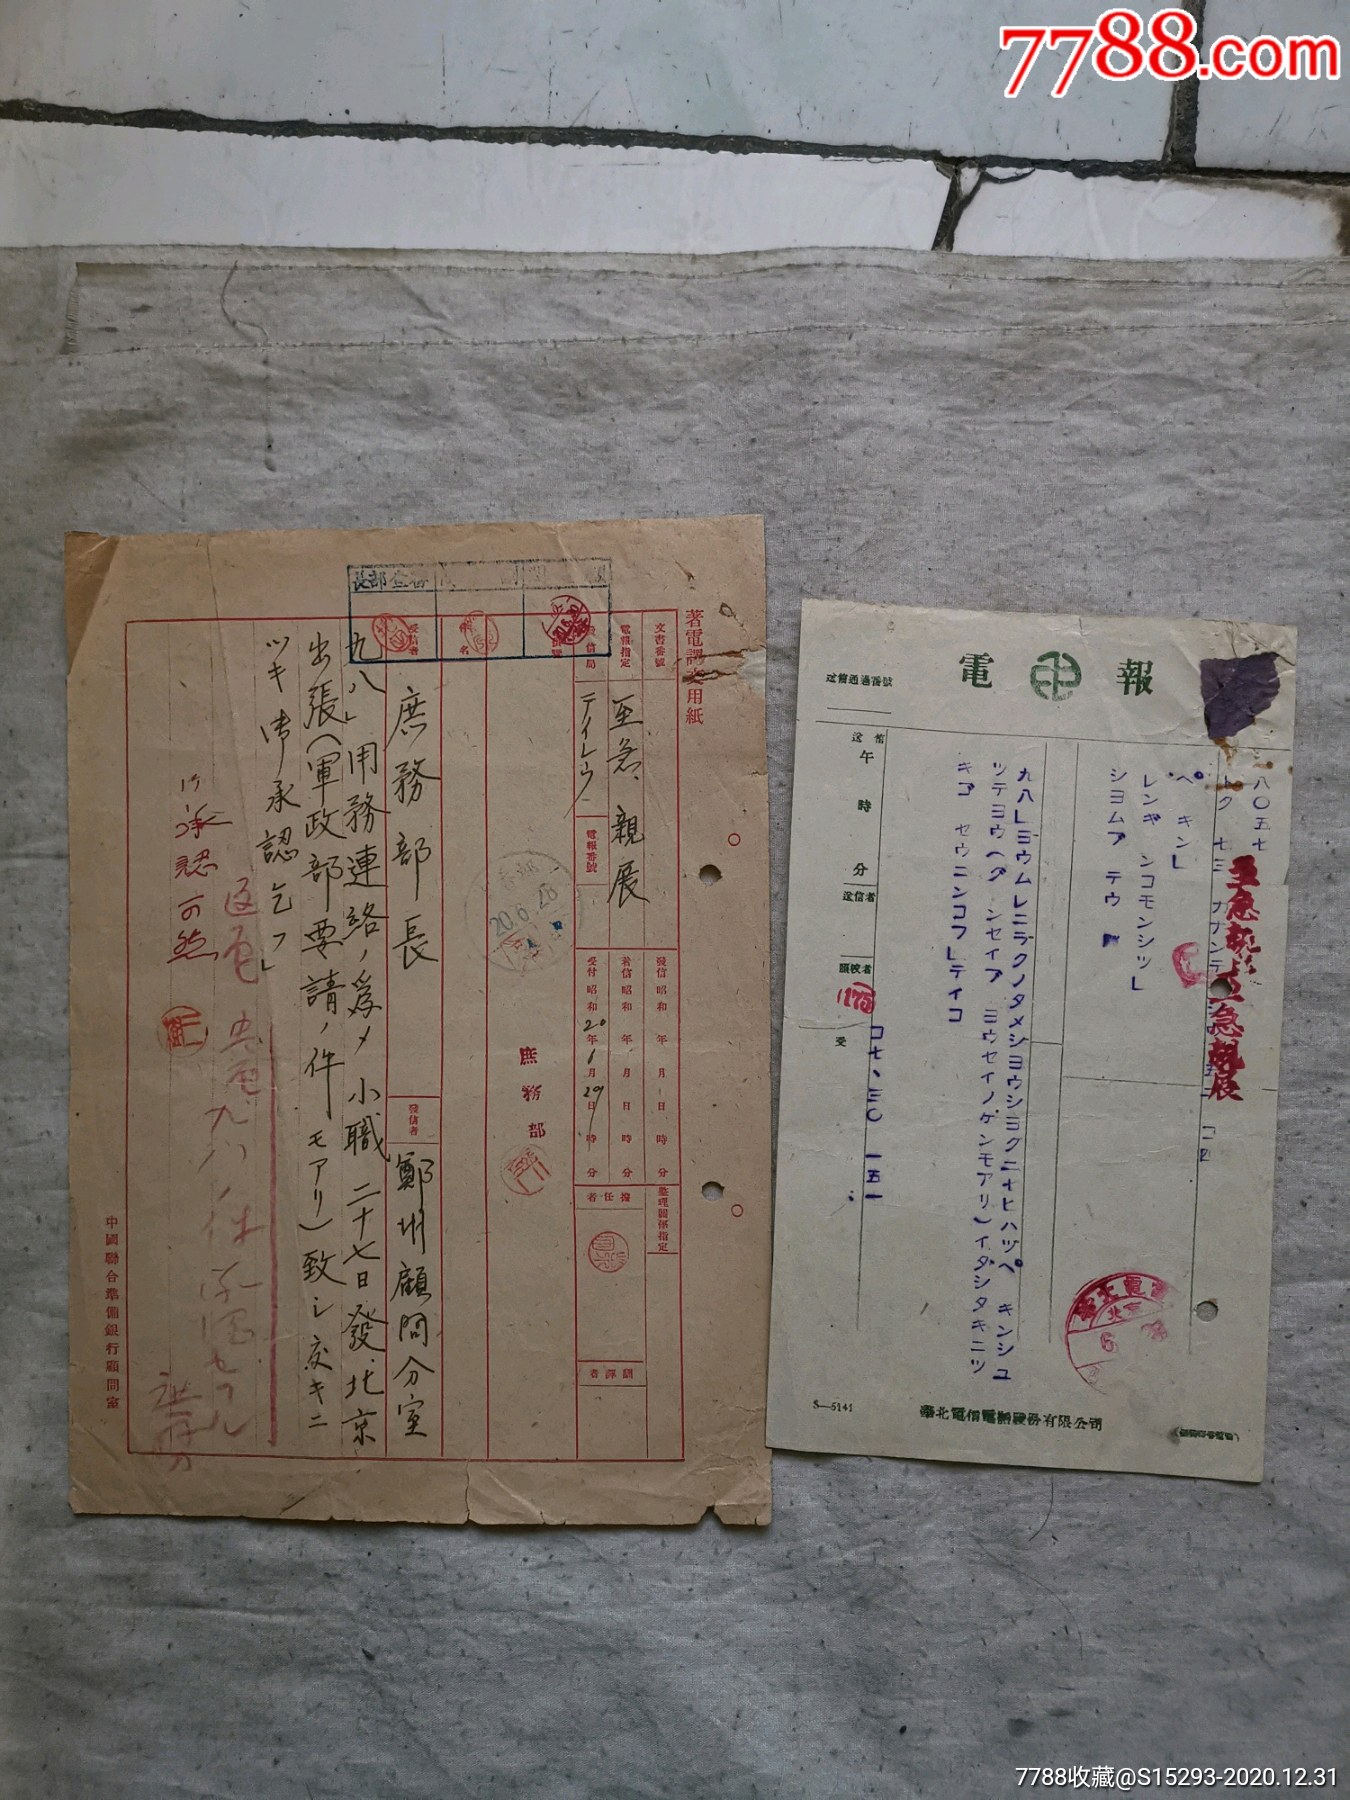 7788.com
電報
送信通過番號
八〇五七
至急親展
至急親展
ペキンL
レンギンコモンシツL
シヨムブテウ
九八Lヨウムレニラクノタメシヨウシヨクニナヒハツペキンシユ
ツテヨウヘグンセイブヨウセイノケンモアリ)イタシタキニツ
キゴセウニンコフLテイコ
送信
午
時
分
送信者
受
S—5141
華北電信電話股份有限公司
著電譯文用紙
文書番號
電報指定
至急、親展
發信局
テイレウ
電報番號
發信昭和 年 月 日 時 分
着信昭和 年 月 日 時 分
受付昭和20年6月29日 時 分
整理關係指定
擔任者
飜譯者
20.6.28
庶務部
受信者
庶務部長
發信者
鄭州顧問分室
九八」用務連絡ノ爲メ小職二十七日發北京
出張(軍政部要請ノ件モアリ)致シ度キニ
ツキ御承認乞フ」
承認可然
返電
中國聯合準備銀行顧問室
7788收藏@S15293-2020.12.31